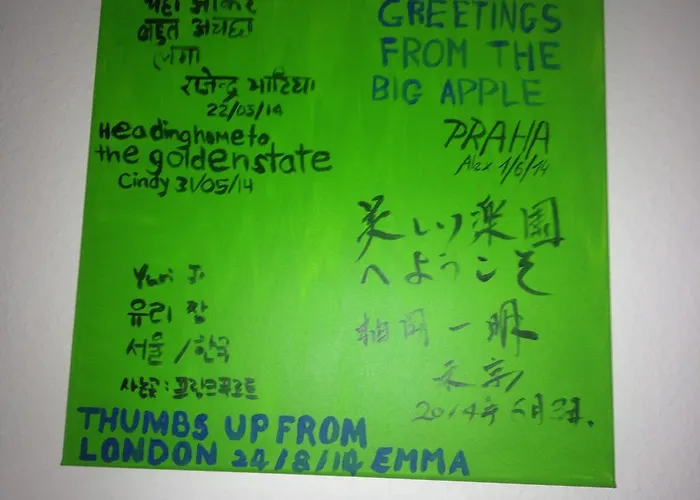 यहाँ आकर
बहुत अच्छा
लगा
राजेन्द्र भाटिया
22/03/14
Heading home to
the golden state
Cindy 31/05/14
GREETINGS
FROM THE
BIG APPLE
PRAHA
Alex 1/6/14
美しい楽園
へようこそ
柏岡 一明
東京
2014年6月3日.
Yuri J.
유리 짱
서울 / 한국
사는곳 : 프랑크푸르트
THUMBS UP FROM
LONDON 24/8/14 EMMA